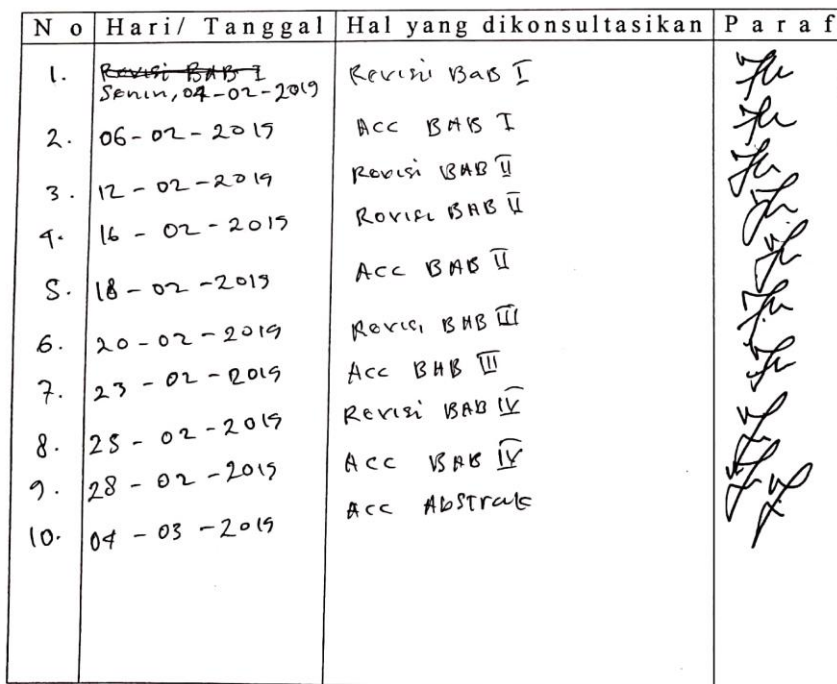 No Hari/ Tanggal Hal yang dikonsultasikan Paraf
1. Revisi BAB I Revisi BaB I
Senin, 04-02-2019
2. 06-02-2019 Acc BAB I
3. 12-02-2019 Revisi BAB II
4. 16-02-2019 Revisi BAB II
5. 18-02-2019 Acc BAB II
6. 20-02-2019 Revisi BAB III
7. 23-02-2019 Acc BAB III
8. 25-02-2019 Revisi BAB IV
9. 28-02-2019 Acc BAB IV
10. 04-03-2019 Acc Abstrak